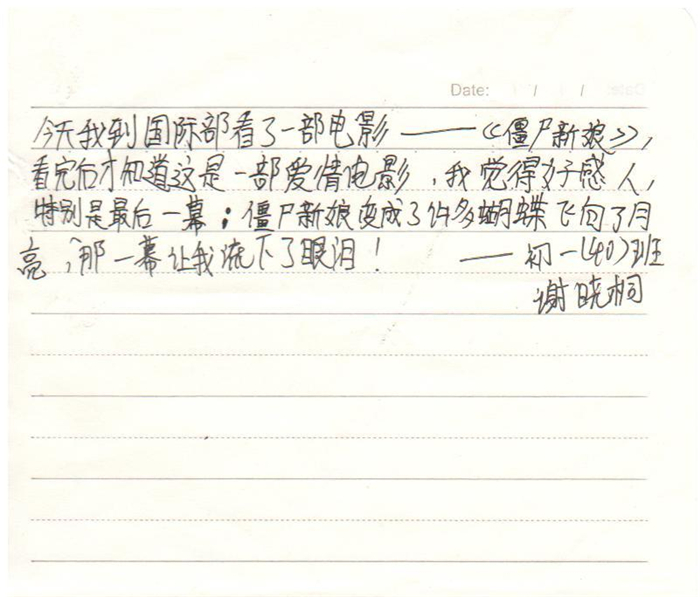 Date: / /
今天我到国际部看了一部电影——《僵尸新娘》,
看完后才知道这是一部爱情电影,我觉得好感人,
特别是最后一幕:僵尸新娘变成了许多蝴蝶飞向了月
亮,那一幕让我流下了眼泪! ——初一(40)班
谢晓桐